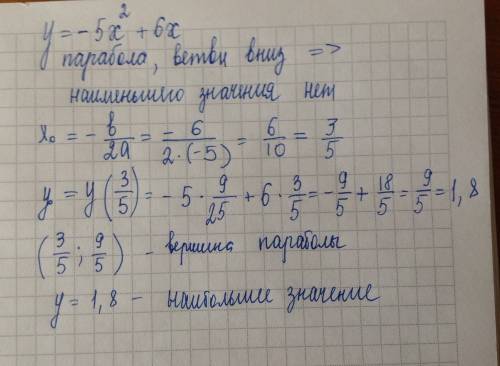 y = -5x² + 6x
парабола, ветви вниз =>
наименьшего значения нет
x₀ = - в/2а = - 6/2·(-5) = 6/10 = 3/5
y = y(3/5) = -5 · 9/25 + 6 · 3/5 = -9/5 + 18/5 = 9/5 = 1,8
(3/5 ; 9/5) - вершина параболы
y = 1,8 - наибольшее значение